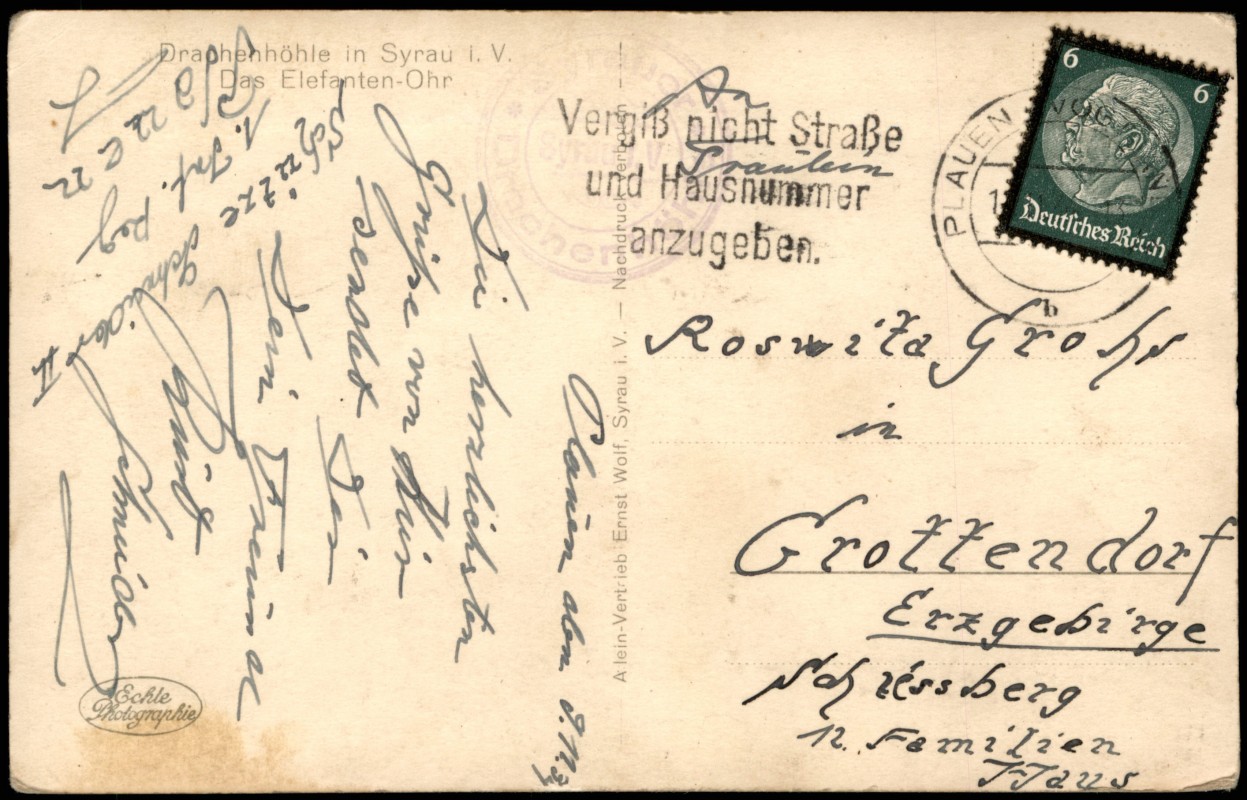 Drachenhöhle in Syrau i. V.
Das Elefanten-Ohr
Plauen den
Die herzlichsten
Grüße von hier
sendet Dir
Dein Freund
Schütze
1. Inf. Reg
Schneider II
Echte
Photographie
Allein-Vertrieb Ernst Wolf, Syrau i. V. — Nachdruck verboten
Syrau i. V.
Drachenhöhle
Vergiß nicht Straße
und Hausnummer
anzugeben.
PLAUEN (VOGTL)
b
6 6
Deutsches Reich
An
Fräulein
Roswita Grohs
in
Grottendorf
Erzgebirge
Schiessberg
12. Familien
Haus